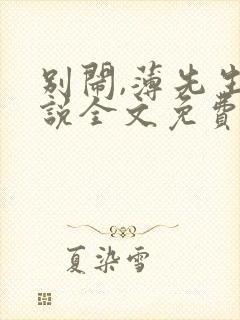 别闹,薄先生
說全文免費
夏染雪